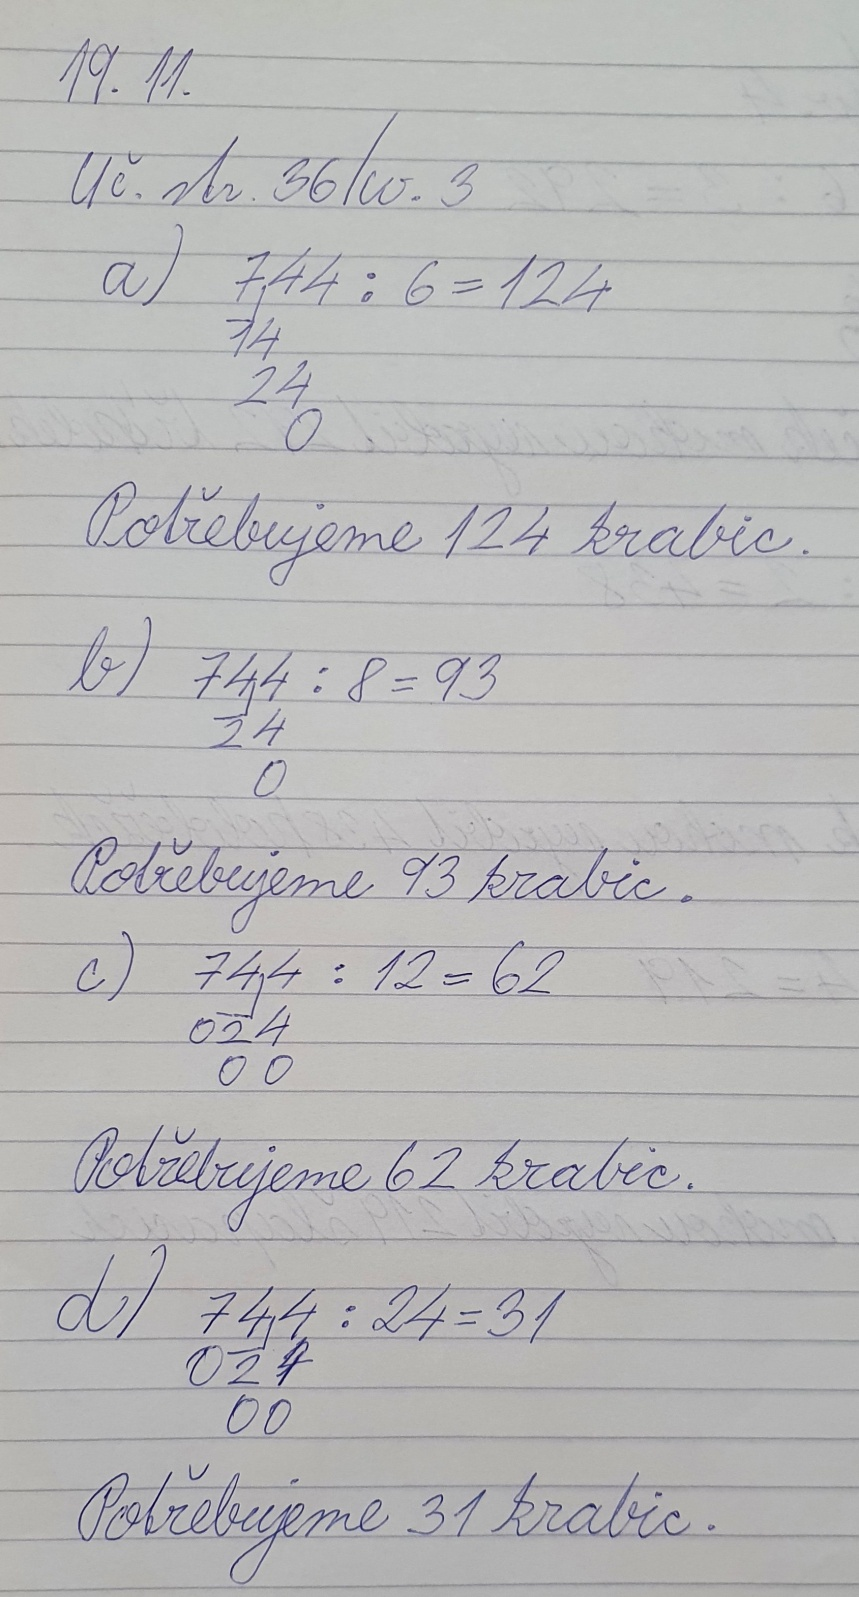 19. 11.
Uč. str. 36/cv. 3
a) 744 : 6 = 124
14
24
0
Potřebujeme 124 krabic.
b) 744 : 8 = 93
24
0
Potřebujeme 93 krabic.
c) 744 : 12 = 62
024
00
Potřebujeme 62 krabic.
d) 744 : 24 = 31
024
00
Potřebujeme 31 krabic.